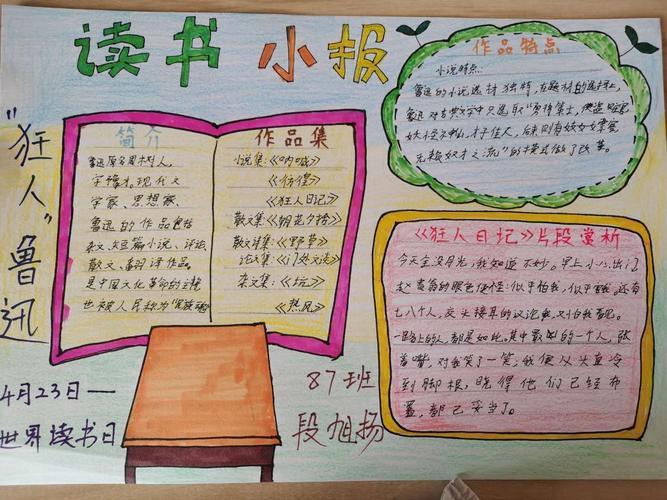 读书 小报
"狂人"鲁迅
简介
鲁迅原名周树人,
字豫才。现代文
学家、思想家、
鲁迅的作品包括
杂文、短篇小说、评论、
散文、翻译作品。
是中国文化革命的主将
也被人民称为"民族魂"
作品集
小说集:《呐喊》
《彷徨》
《狂人日记》
散文集:《朝花夕拾》
散文诗集:《野草》
论文集:《门外文谈》
杂文集:《坟》
《热风》
作品特点
小说特点
鲁迅的小说选材独特,在题材的选择上,
鲁迅对古典文学中只选取"勇将策士,侠盗赃官,
妖怪神仙,才子佳人,后来则有妓女嫖客
无赖奴才之流"的模式做了改革。
《狂人日记》片段赏析
今天全没月光,我知道不妙。早上小心出门
赵贵翁的眼色便怪:似乎怕我,似乎 我。还有
七八个人,交头接耳的议论我,又怕我看见。
一路上的人,都是如此。其中最凶的一个人,张
着嘴,对我笑了一笑,我便从头直冷
到脚根,晓得他们已经布
置,都已妥当了。
4月23日—
世界读书日
87班
段旭扬